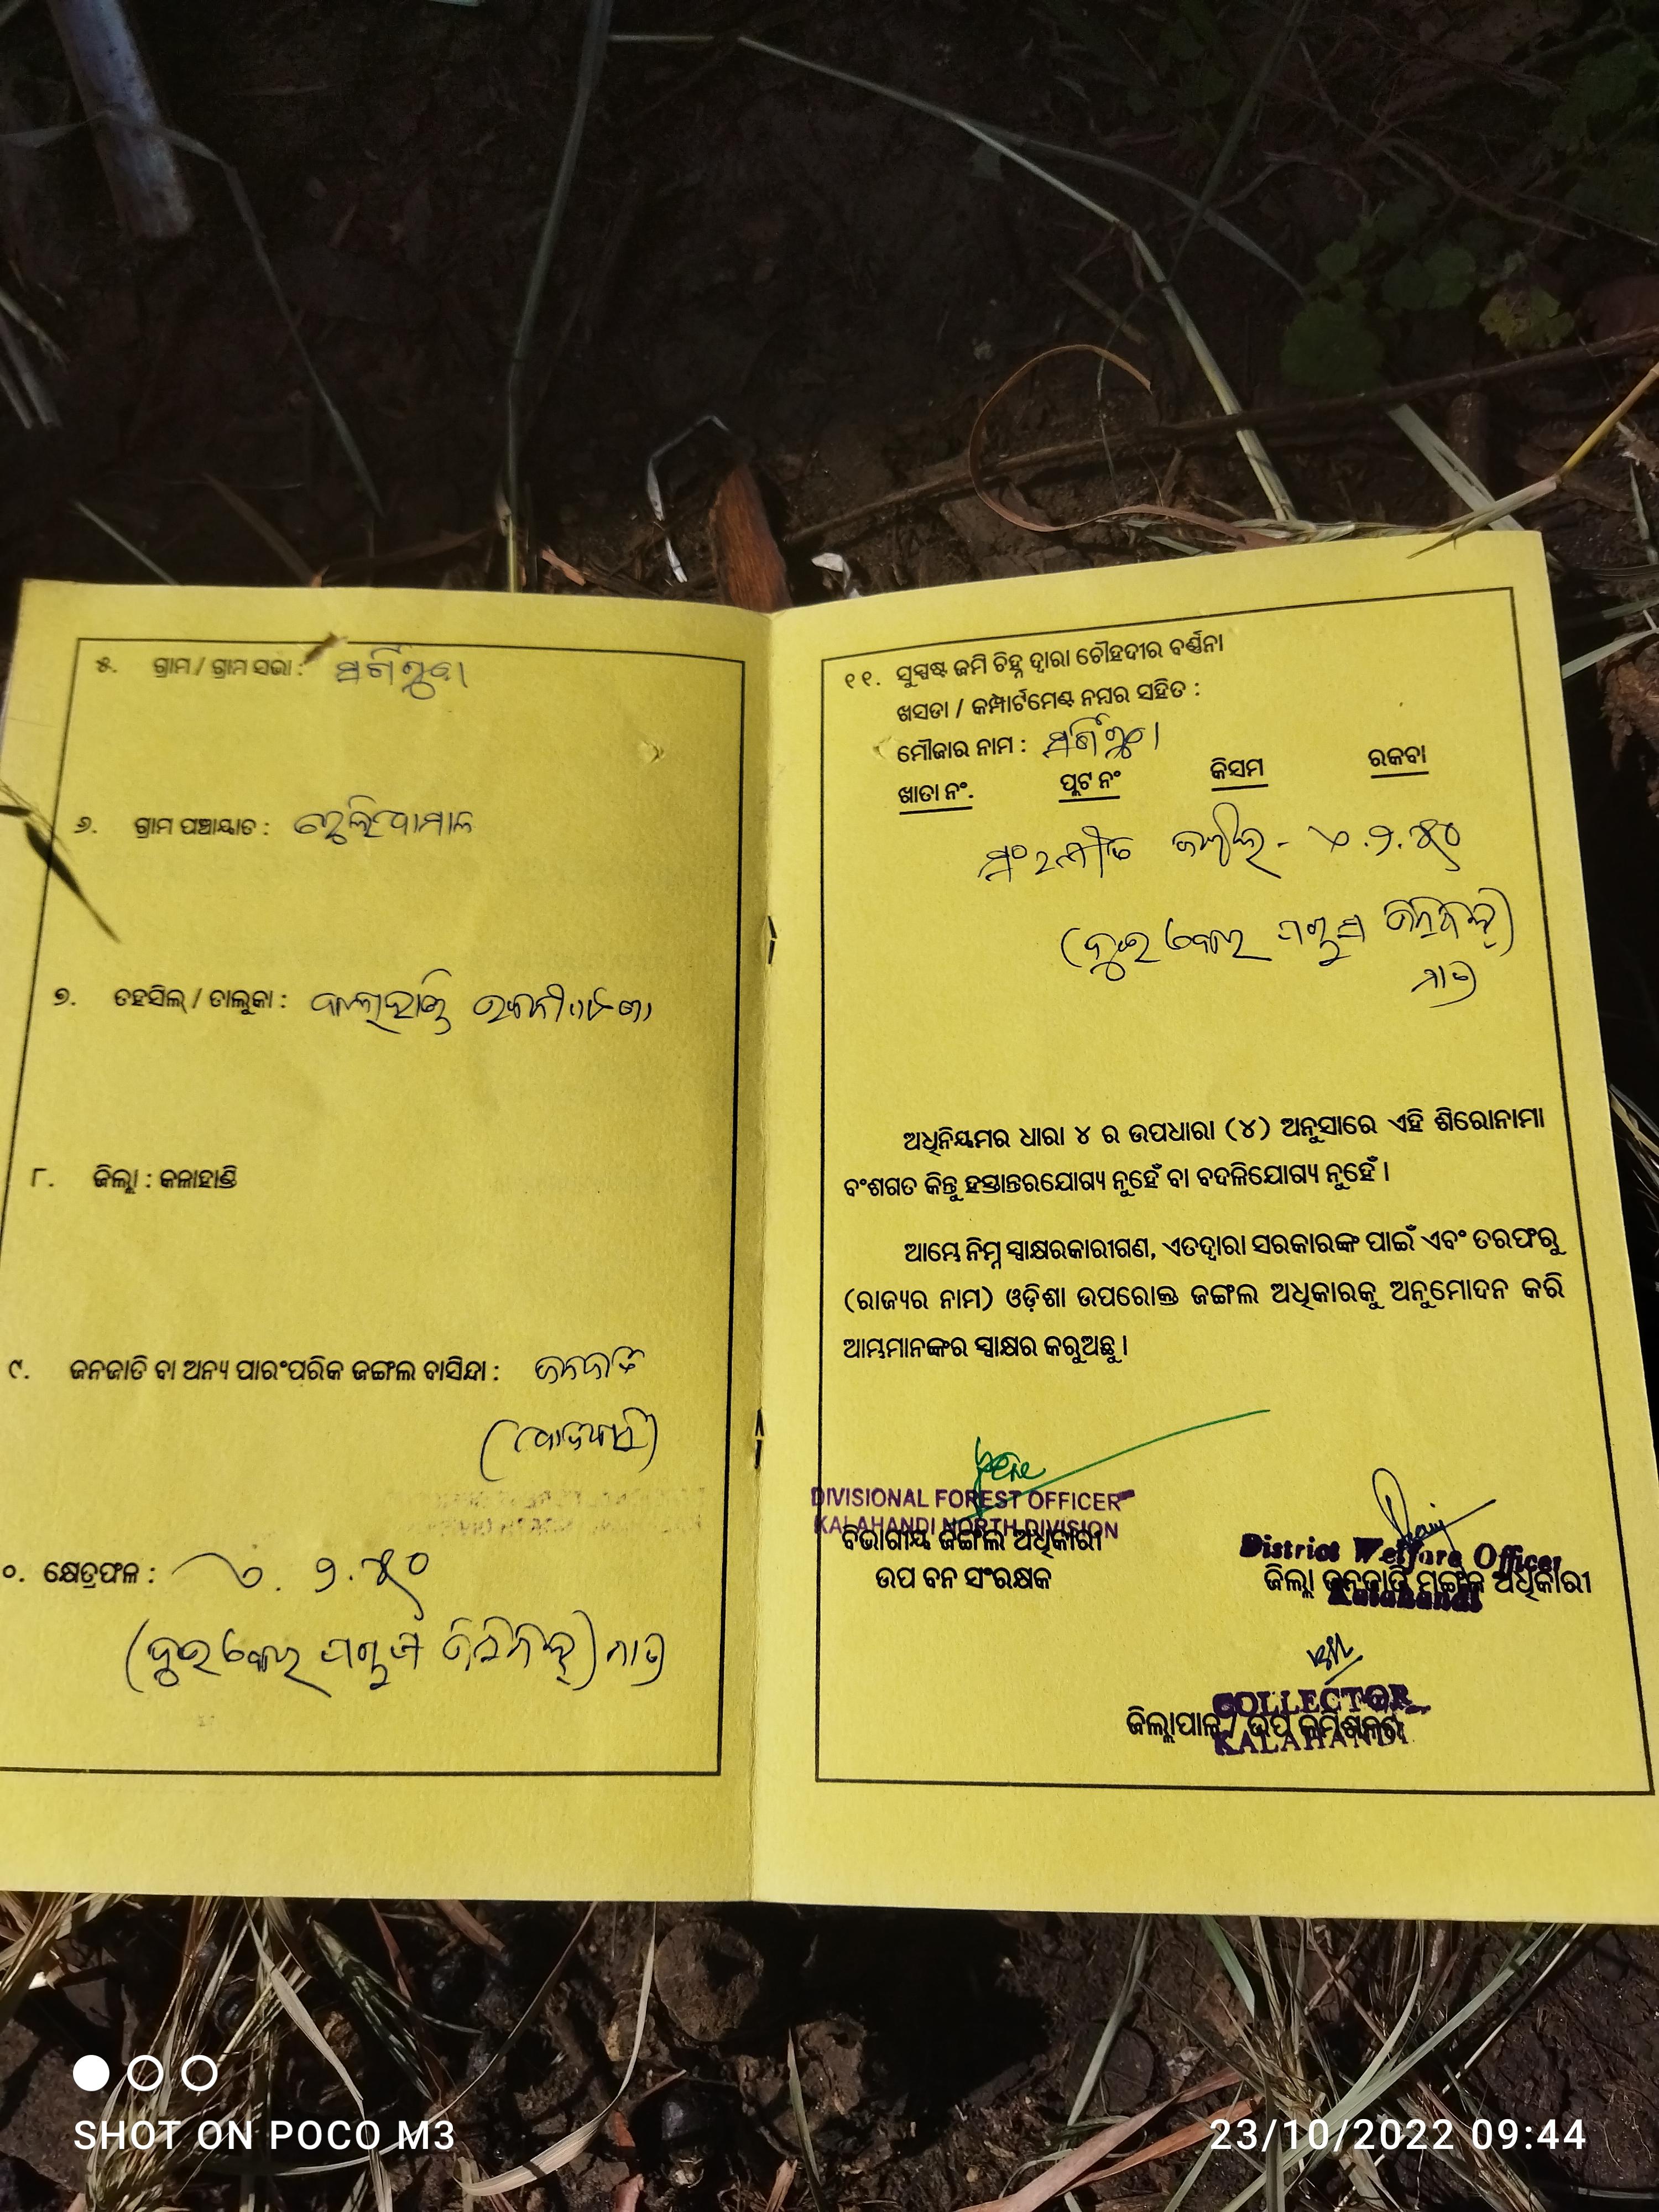 ୫. ଗ୍ରାମ / ଗ୍ରାମ ସଭା :
୬. ଗ୍ରାମ ପଞ୍ଚାୟାତ :
୭. ତହସିଲ୍ / ତାଲୁକା : କଳାହାଣ୍ଡି
୮. ଜିଲ୍ଲା : କଳାହାଣ୍ଡି
୯. ଜନଜାତି ବା ଅନ୍ୟ ପାରଂପରିକ ଜଙ୍ଗଲ ବାସିନ୍ଦା : ଜନଜାତି
୦. କ୍ଷେତ୍ରଫଳ : ୨.୫୦
(ଦୁଇ ମାତ୍ର
୧୧. ସୁସ୍ପଷ୍ଟ ଜମି ଚିହ୍ନ ଦ୍ୱାରା ଚୌହଦୀର ବର୍ଣ୍ଣନା
ଖସଡା / କମ୍ପାର୍ଟମେଣ୍ଟ ନମ୍ବର ସହିତ :
ମୌଜାର ନାମ :
ଖାତା ନଂ. ପ୍ଲଟ ନଂ କିସମ ରକବା
ଜଙ୍ଗଲ - ୨.୫୦
(ଦୁଇ
ମାତ୍ର
ଅଧିନିୟମର ଧାରା ୪ ର ଉପଧାରା (୪) ଅନୁସାରେ ଏହି ଶିରୋନାମା
ବଂଶଗତ କିନ୍ତୁ ହସ୍ତାନ୍ତରଯୋଗ୍ୟ ନୁହେଁ ବା ବଦଳିଯୋଗ୍ୟ ନୁହେଁ ।
ଆମ୍ଭେ ନିମ୍ନ ସ୍ୱାକ୍ଷରକାରୀଗଣ, ଏତଦ୍ୱାରା ସରକାରଙ୍କ ପାଇଁ ଏବଂ ତରଫରୁ
(ରାଜ୍ୟର ନାମ) ଓଡ଼ିଶା ଉପରୋକ୍ତ ଜଙ୍ଗଲ ଅଧିକାରକୁ ଅନୁମୋଦନ କରି
ଆମ୍ଭମାନଙ୍କର ସ୍ୱାକ୍ଷର କରୁଅଛୁ ।
DIVISIONAL FOREST OFFICER
KALAHANDI NORTH DIVISION
ବିଭାଗୀୟ ଜଙ୍ଗଲ ଅଧିକାରୀ
ଉପ ବନ ସଂରକ୍ଷକ
District Welfare Officer
ଜିଲ୍ଲା ଜନଜାତି ମଙ୍ଗଳ ଅଧିକାରୀ
Kalahandi
COLLECTOR
ଜିଲ୍ଲାପାଳ / ଉପ କମିଶନର
KALAHANDI
SHOT ON POCO M3
23/10/2022 09:44